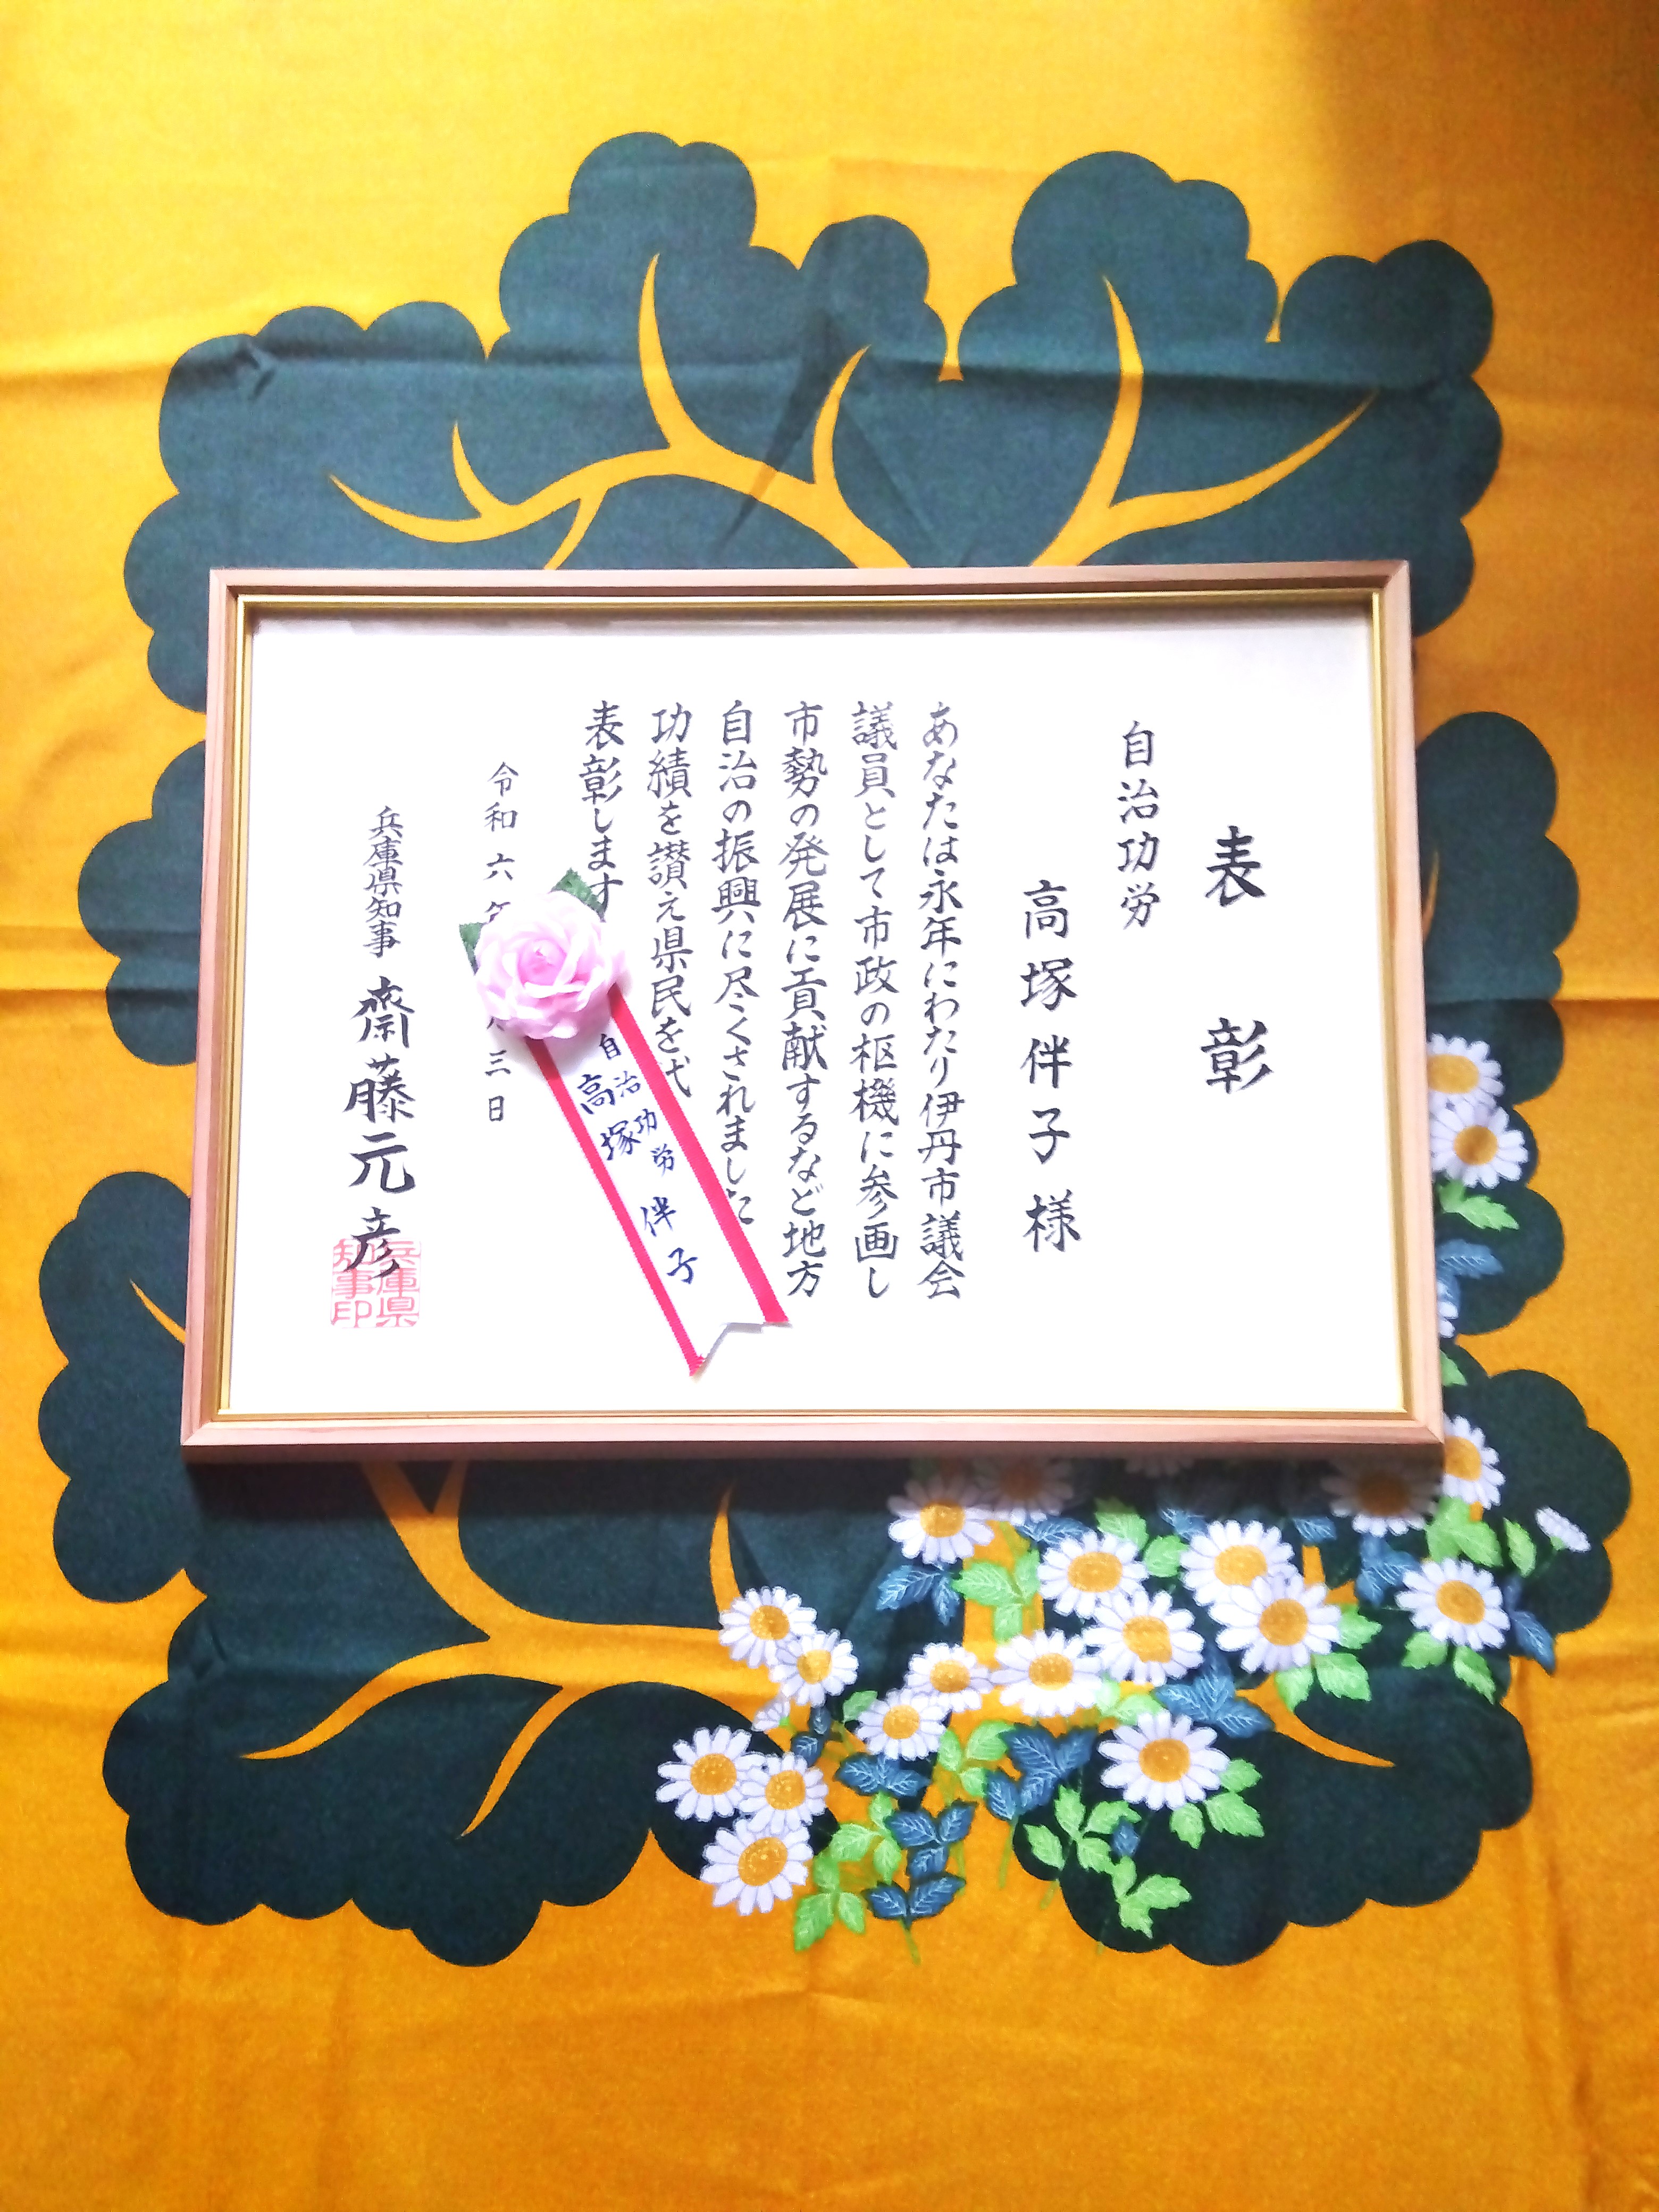 表彰
自治功労
高塚伴子様
あなたは永年にわたり伊丹市議会
議員として市政の枢機に参画し
市勢の発展に貢献するなど地方
自治の振興に尽くされました
功績を讃え県民を代
表彰します
令和六年
三日
兵庫県知事 齋藤元彦
兵庫県知事印
自治功労
高塚伴子